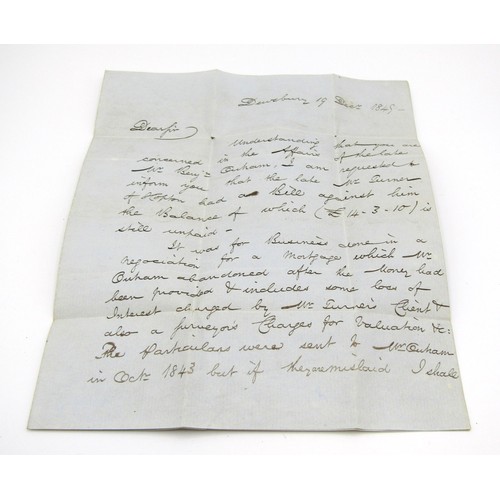 Dewsbury 19 Decr 1845
Dear Sir
Understanding that you are
concerned in the Affairs of the late
Mr Benjn Outram, I am requested to
inform you that the late Mr Turner
of Hopton had a Bill against him
the Balance of which (£14-3-10) is
still unpaid -
It was for Business done in a
negociation for a Mortgage which Mr
Outram abandoned after the Money had
been provided & includes some loss of
Interest charged by Mr Turner's Client &
also a Surveyors Charges for Valuation &c:
The Particulars were sent to Mr Outram
in Octr 1843 but if they are mislaid I shall